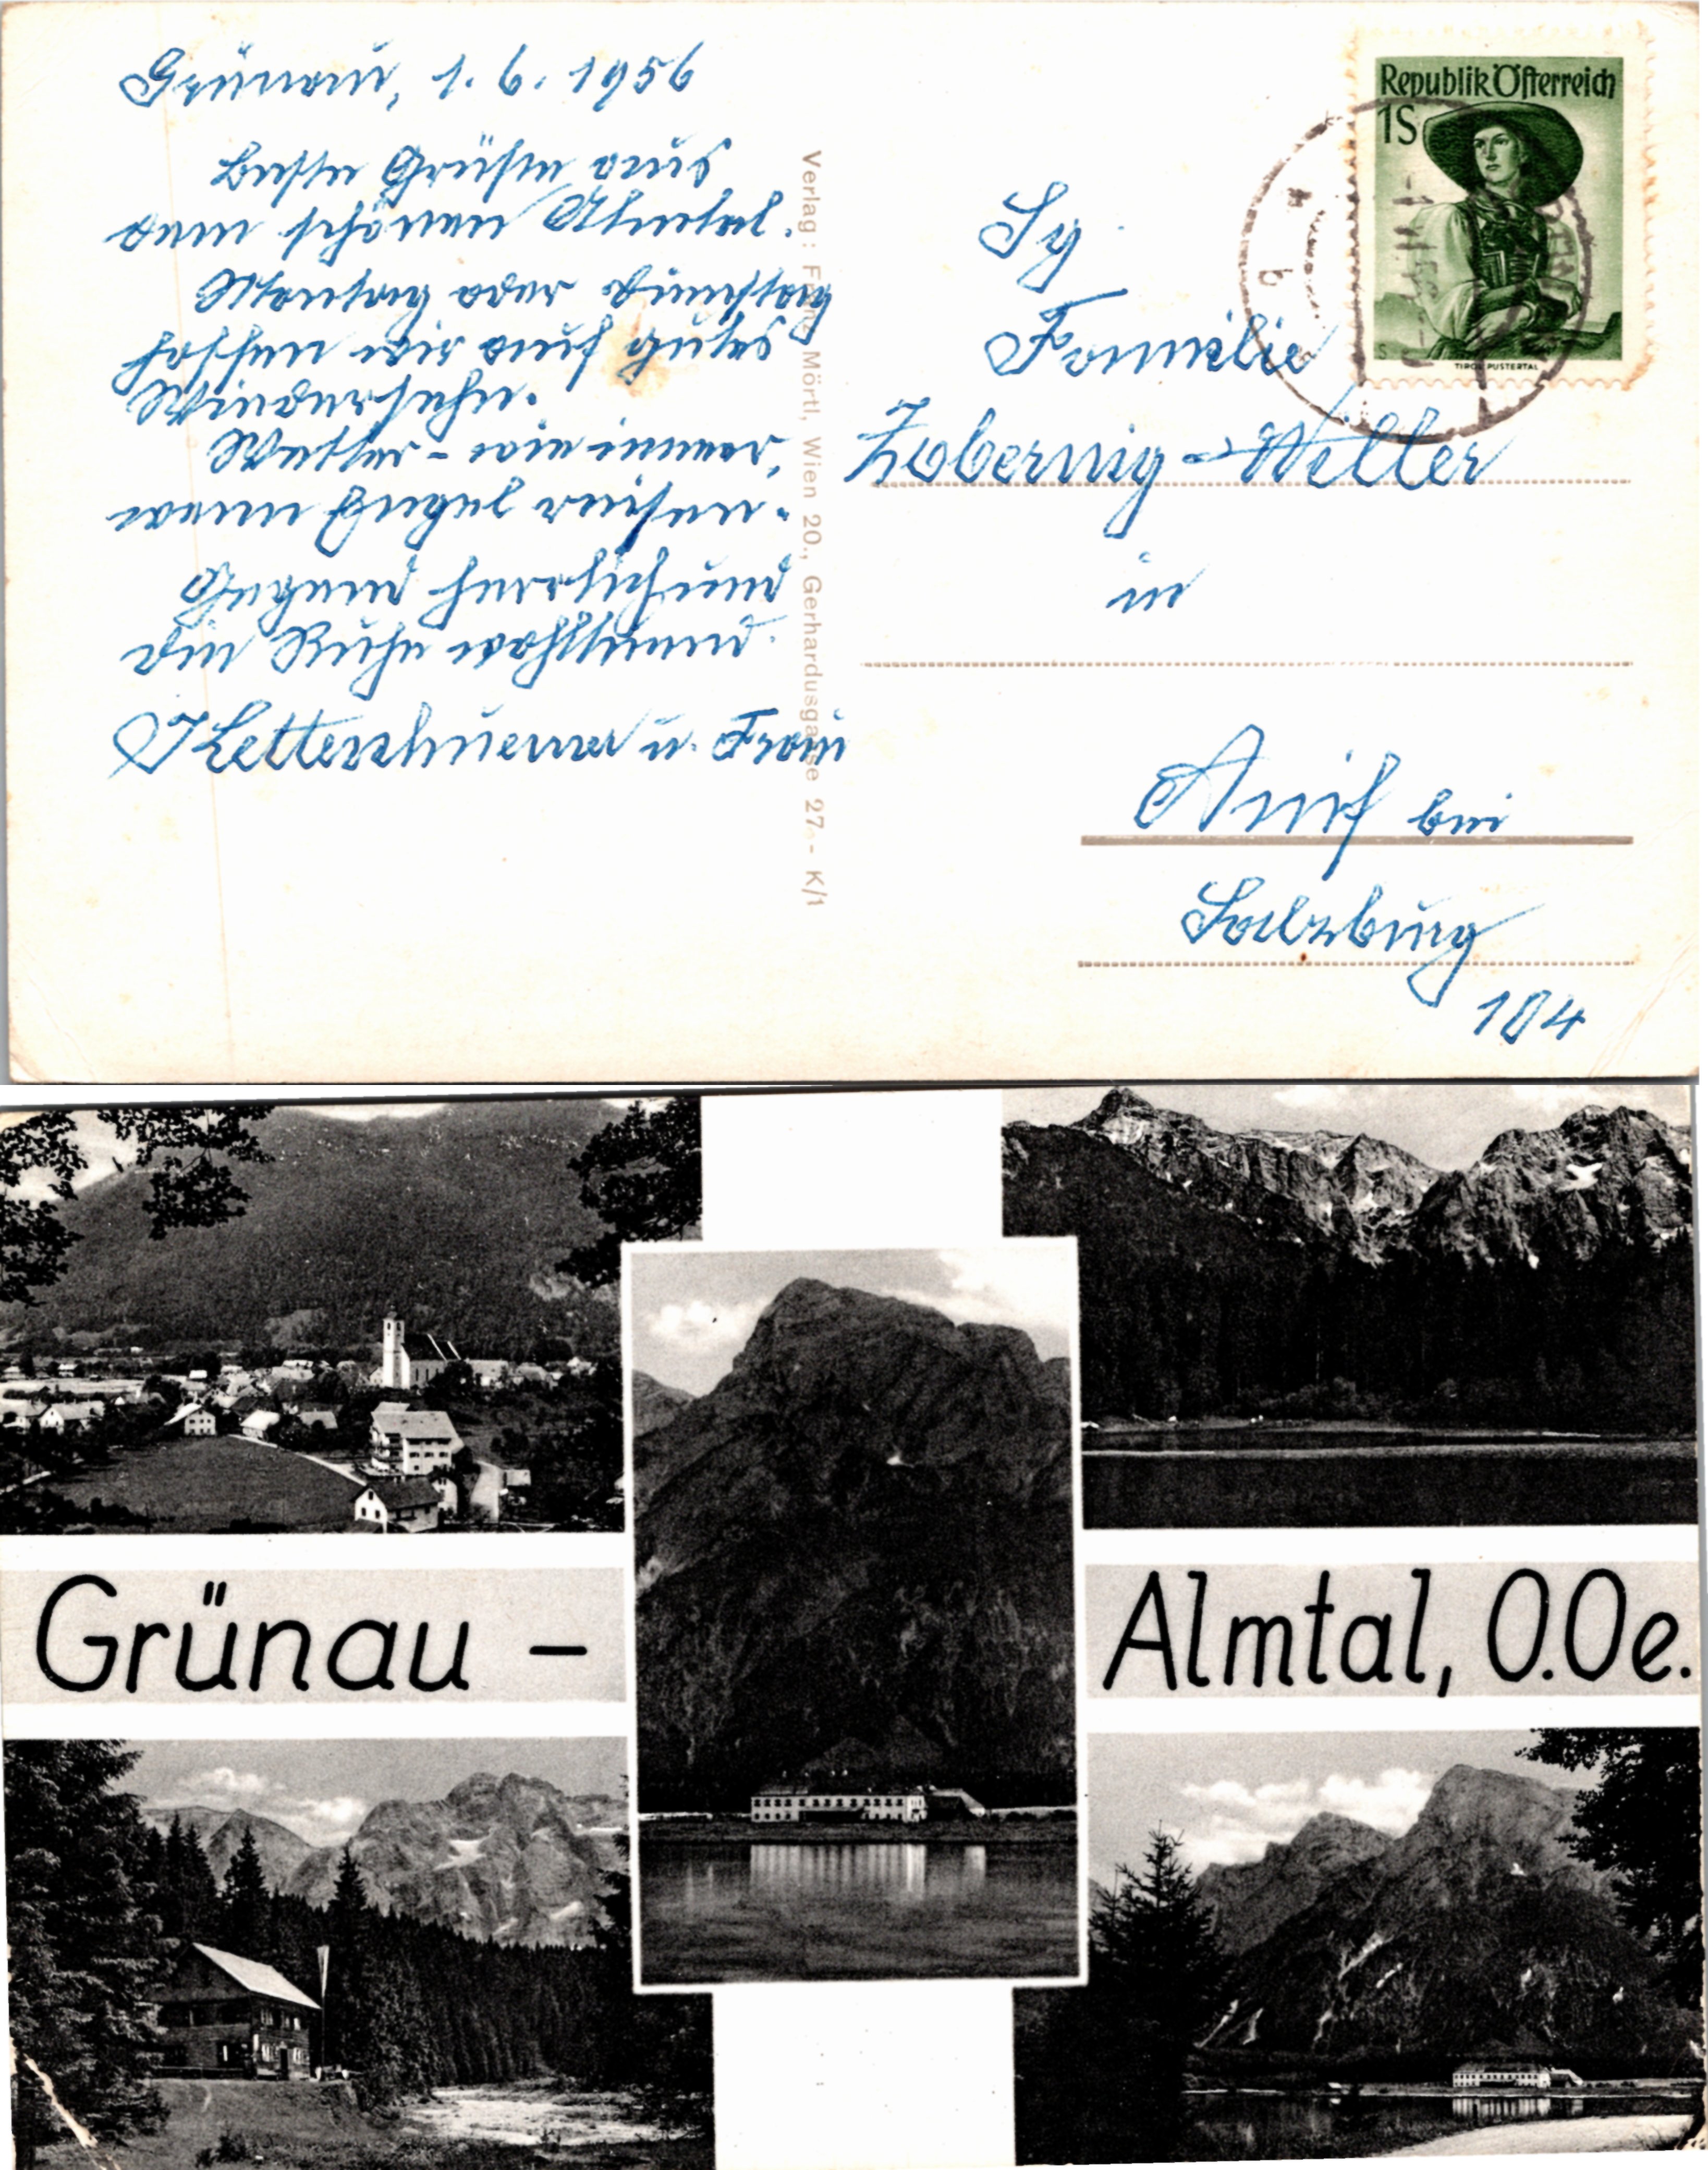 Grünau, 1. 6. 1956
Beste Grüße aus
dem schönen Almtal.
Montag oder Dienstag
hoffen wir auf gutes
Wiedersehn.
Wetter - wie immer,
wenn Engel reisen.
Gegend herrlich und
die Ruhe wohltuend.
u. Frau
Verlag: Franz Mörtl, Wien 20., Gerhardusgasse 27 - K/1
Republik Österreich
1S
TIROL PUSTERTAL
b
Familie
Zobernig - Weller
in
Anif bei
Salzburg
184
Grünau -
Almtal, O.Oe.